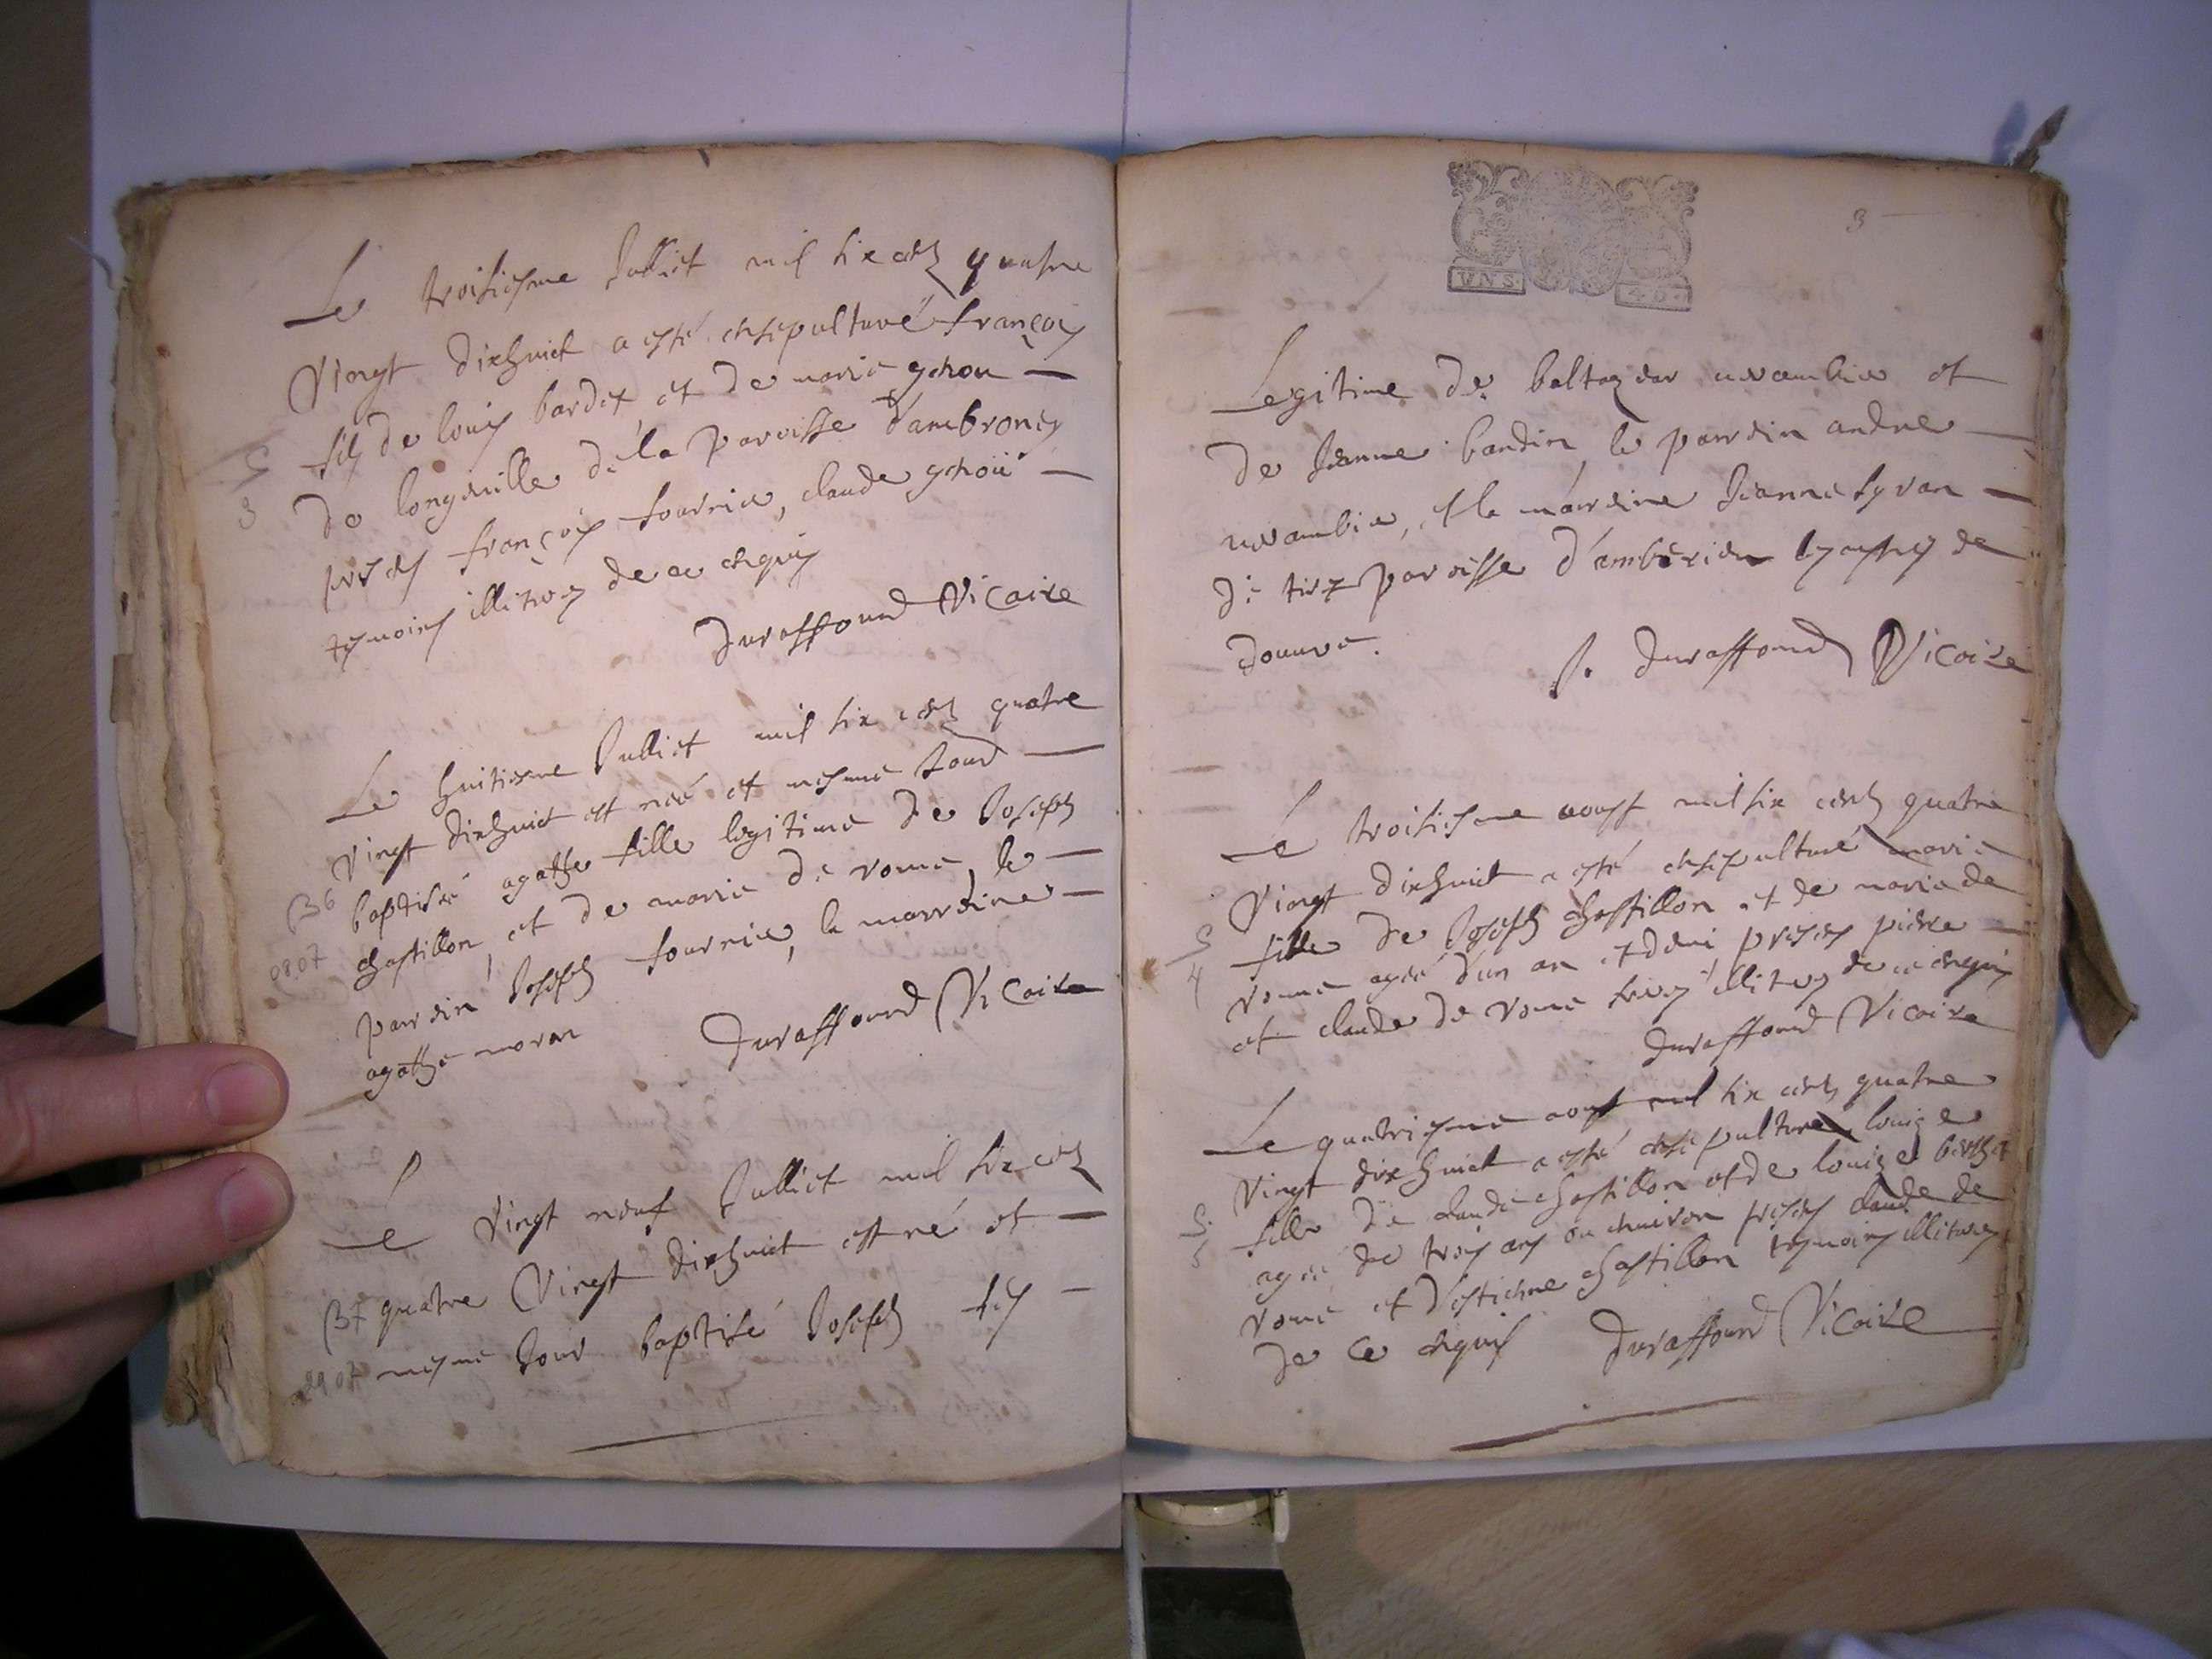 Le troisiesme Julliet mil six cens quatre
Vingt dixhuict a esté ensepulturé françois
fils de louis bardet, et de marie
de longeville de la paroisse d'ambronay
présens françois fournier, claude
tesmoins illitrez de ce enquis
Duraffourd Vicaire
S
3
Le huitiesme Julliet mil six cens quatre
Vingt dixhuict est née et mesme Jour
baptisée agathe fille legitime de Joseph
chastillon, et de marie de rome, le
parrein Joseph fournier, la marreine
agathe moran
Duraffourd Vicaire
B6
08.07
Le Vingt neuf Julliet mil six cens
quatre Vingt dixhuict est né et
mesme Jour baptisé Joseph fils
B7
29 07
3
Legitime de baltazar et
de Jeanne baudin, le parrein andre
et la marreine Jeanne
de paroisse d'amberieu
douvre.
J. Duraffourd Vicaire
Le troisiesme aoust mil six cens quatre
Vingt dixhuict a esté ensepulturé marie
fille de Joseph chastillon et de marie de
rome agée d'un an et demi présens pierre
et claude de rome illitrez de ce enquis
Duraffourd Vicaire
S
4
Le quatriesme aoust mil six cens quatre
Vingt dixhuict a esté ensepulturé louize
fille de claude chastillon et de louize berthet
agée de trois ans ou environ présens claude de
rome et d'estienne chastillon tesmoins illitrez
de ce enquis Duraffourd Vicaire
S
5